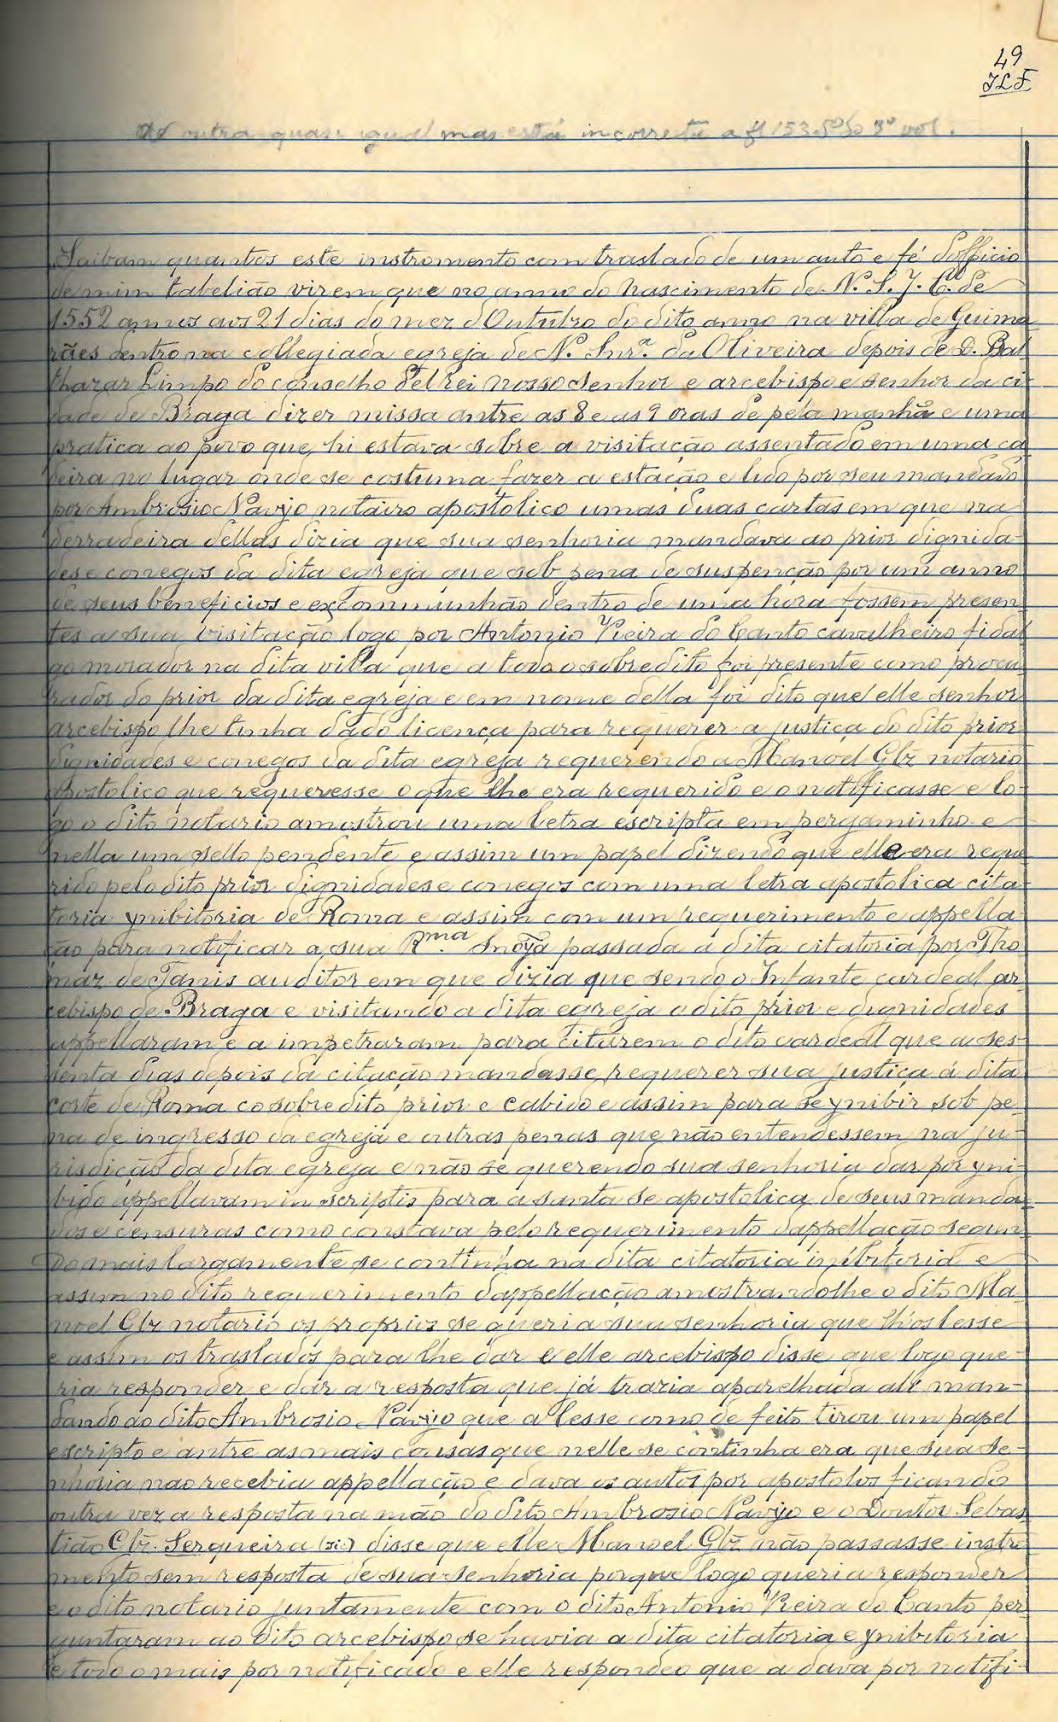 49
JLF
outra quasi igual mas está incorrecta a fl 153 do 3º vol.
Saibam quantos este instromento com traslado de um auto e fé d'officio
de mim tabelião virem que no anno do nascimento de N. S. J. C. de
1552 annos aos 21 dias do mez d'Outubro do dito anno na villa de Guima-
rães dentro na collegiada egreja de N. Snr.ª da Oliveira depois de D. Bal
thazar Limpo do conselho d'el rei nosso senhor e arcebispo e senhor da ci
dade de Braga dizer missa antre as 8 e as 9 oras de pela manhã e uma
pratica ao povo que hi estava sobre a visitação assentado em uma ca
deira no lugar onde se costuma fazer a estação e lido por seu mandado
por Ambrosio Navyo notairo apostolico umas duas cartas em que na
derradeira dellas dizia que sua senhoria mandava ao prior dignida-
des e conegos da dita egreja que sob pena de suspenção por um anno
de seus beneficios e excommunhão dentro de uma hora fossem presen-
tes a sua visitação logo por Antonio Vieira do Canto cavalheiro fidal
go morador na dita villa que a todo o sobredito foi presente como procu
rador do prior da dita egreja e em nome della foi dito que elle senhor
arcebispo lhe tinha dado licença para requerer a justiça do dito prior
dignidades e conegos da dita egreja requerendo a Manoel Glz notario
apostolico que requeresse o que lhe era requerido e o notificasse e lo-
go o dito notario amostrou uma letra escripta em pergaminho e
nella um sello pendente e assim um papel dizendo que elle era reque
rido pelo dito prior dignidades e conegos com uma letra apostolica cita-
toria ynibitoria de Roma e assim com um requerimento e appella-
ção para notificar a sua Rma Snoya passada a dita citatoria por Tho
maz de Tanis auditor em que dizia que sendo o Infante cardeal ar
cebispo de Braga e visitando a dita egreja o dito prior e dignidades
appellaram e a impetraram para citarem o dito cardeal que a ses-
senta dias depois da citação mandasse requerer sua justiça á dita
corte de Roma co sobredito prior e cabido e assim para se ynibir sob pe-
na de ingresso da egreja e outras penas que não entendessem na ju-
risdição da dita egreja e não se querendo sua senhoria dar por yni-
bido appellavam in scriptis para a santa se apostolica de seus manda
dos e censuras como constava pelo requerimento d'appellação segun
do mais largamente se continha na dita citatoria inibitoria e
assim no dito requerimento d'appellação amostrandolhe o dito Ma-
noel Glz notario os proprios se queria sua senhoria que lh'os lesse
e assim os traslados para lhe dar e elle arcebispo disse que logo que-
ria responder e dar a resposta que já trazia aparelhada ali man-
dando ao dito Ambrosio Navyo que a lesse como de feito tirou um papel
escripto e antre as mais cousas que nelle se continha era que sua se-
nhoria nao recebia appellação e dava os autos por apostolos ficando
outra vez a resposta na mão do dito Ambrosio Navyo e o Doutor Sebas
tião Clz. Serqueira (sic) disse que elle Manoel Glz não passasse instro
mento sem resposta de sua senhoria porque logo queria responder
e o dito notario juntamente com o dito Antonio Vieira do Canto per-
guntaram ao dito arcebispo se havia a dita citatoria e ynibitoria
e todo o mais por notificado e elle respondeo que a dava por notifi-